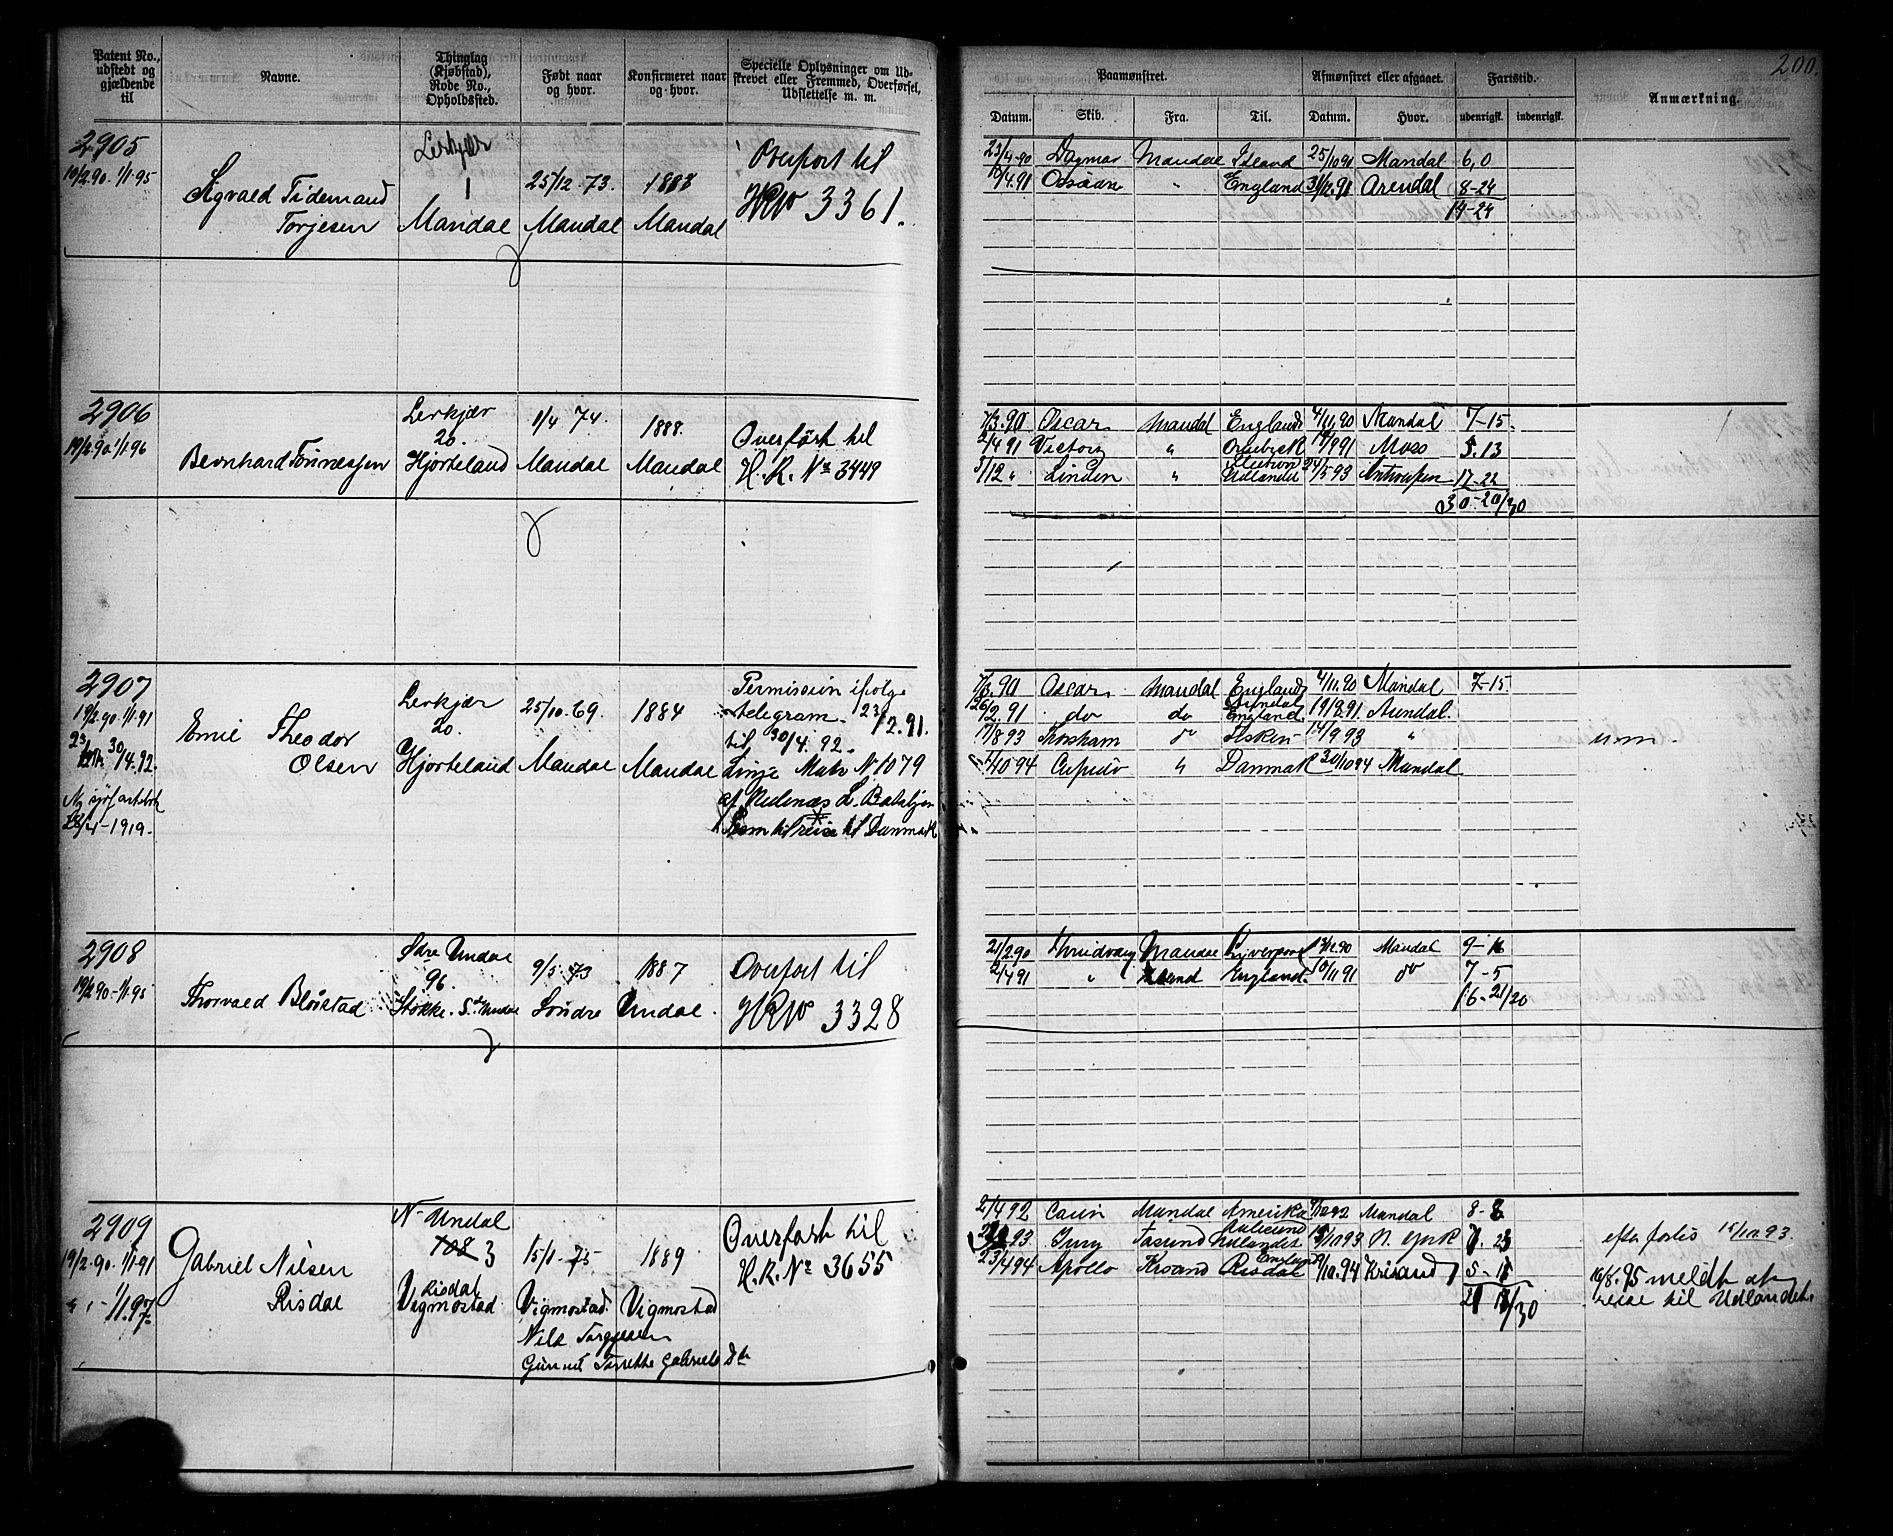 200.
Patent No., udstedt og gjældende til
Navne.
Thinglag (Kjøbstad), Rode No., Opholdssted.
Født naar og hvor.
Konfirmeret naar og hvor.
Specielle Oplysninger om Udskrevet eller Fremmed, Overførsel, Udslettelse m. m.
Paamønstret.
Afmønstret eller afgaaet.
Fartstid.
Anmærkning.
Datum. Skib. Fra. Til. Datum. Hvor. udenrigsk. indenrigsk.
2905
19/2.90. 1/1.95
Sigvald Tidemand
Torjesen
Lerkjær
1
Mandal
25/12.73.
Mandal
1888
Mandal
Overført til
HR No 3361.
23/4.90 Dagmar Mandal Island 25/10 90 Mandal 6,0
4.91 " England 31/12.91 Arendal 8-24
14-24
2906
19/2.90 1/1.96
Bernhard Tønnessen
Lerkjær
20.
Hjorteland
1/4 74.
Mandal
1888.
Mandal
Overført til
H. R. No 3449
7/3.90 Oscar Mandal England 4/11.90 Mandal 7-15.
2/4 91 Victor " 19/9 91 Moss 5.13
3/12 " Linden " Udlandet 24/5 93 Antwerpen 17-22
30-20/30
2907
19/2.90. 1/1.91
30/4.92.
Ny sjøfartsbok
28/4-1919.
Emil Theodor
Olsen
Lerkjær
20.
Hjorteland
25/10.69.
Mandal
1884
Mandal
Permission ifølge
telegram 23/12.91.
til 30/4.92.
Linje Matr N 1079
af Nedenæs L. Bataljon
til reise til Danmark
7/3.90 Oscar Mandal England 4/11.90 Mandal 7-15
26/2.91 do do England 19/8.91. Arendal.
17/8 93 do Fisken 14/9 93 "
1/10 94 Cupido " Danmark 30/10 94 Mandal
2908
19/2 90-1/1.95
Thorvald Bløistad
Sdre Undal
96.
Stokke. S. Undal
9/5.73
Søndre
1887
Undal.
Overført til
HR No 3328
21/2.90 Mandal Liverpool 90 Mandal 9-16
2/4 91 " England. 10/11 91 do 7-5
16-21/20
2909
19/2.90. 1/1.91
" " - 1/1.97
Gabriel Nilsen
Risdal
N. Undal
108 3
Risdal
Vigmostad
15/1.75
Vigmostad.
1889
Vigmostad
Nils Torgjesen
Gabriels Dtr
Overført til
H. R. No 3655
2/4 92 Mandal Amerika 92 Mandal 8-8
93 10 93 N. York 7. 23
23/4 94 Apollo Krsand Risdal 10.94 Krisand 5-11
21 12/30
15/10.93.
16/8.95 meldt at
reise til Udlandet.